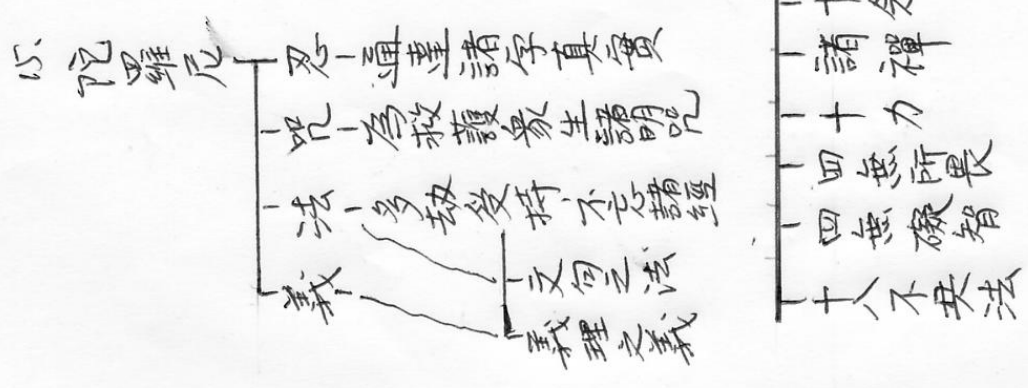 15、陀羅尼
忍-通達諸字真實
咒-為救護众生諸明咒
法-多劫受持不忘諸經
義
文句之法
義理之義
諸禪
十力
四無所畏
四無礙智
十八不共法